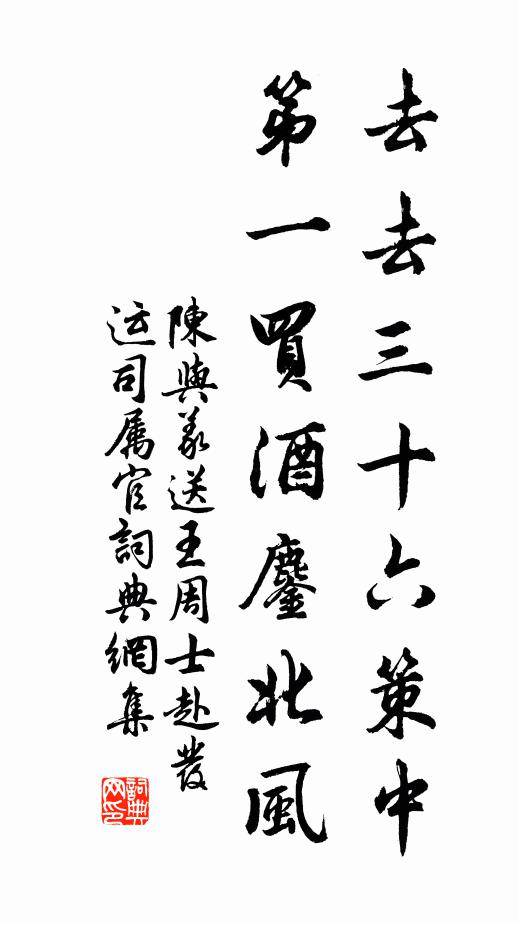 去去三十六策中
第一買酒鏖北風
陳與義送王周士赴發
运司属官詞典網集
詞典网印